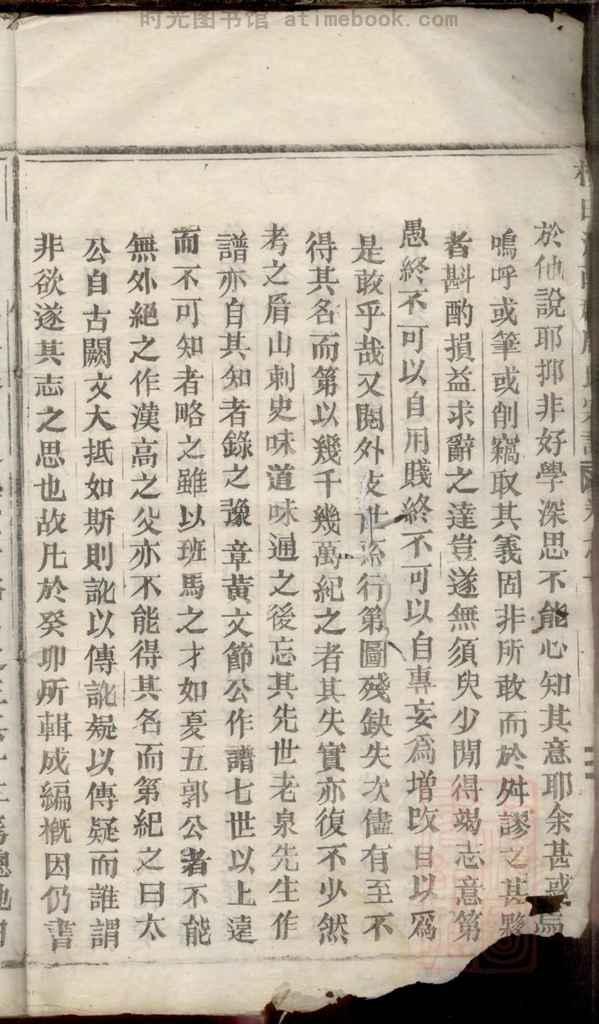 时光图书馆 atimebook.com
於他說耶抑非好學深思不能心知其意耶余甚惑焉
嗚呼或筆或削竊取其義固非所敢而於舛謬之甚
者斟酌損益求辭之達豈遂無須臾少閒得竭志意第
愚終不可以自用賤終不可以自專妄爲增改自以爲
是敢乎哉又閱外支世系行第圖殘缺失次儘有至不
得其名而第以幾千幾萬紀之者其失實亦復不少然
考之眉山刺史味道味通之後忘其先世老泉先生作
譜亦自其知者錄之豫章黃文節公作譜七世以上遠
而不可知者略之雖以班馬之才如夏五郭公者不能
無外絕之作漢高之父亦不能得其名而第紀之曰太
公自古闕文大抵如斯則訛以傳訛疑以傳疑而誰謂
非欲遂其志之思也故凡於癸卯所輯成編概因仍書